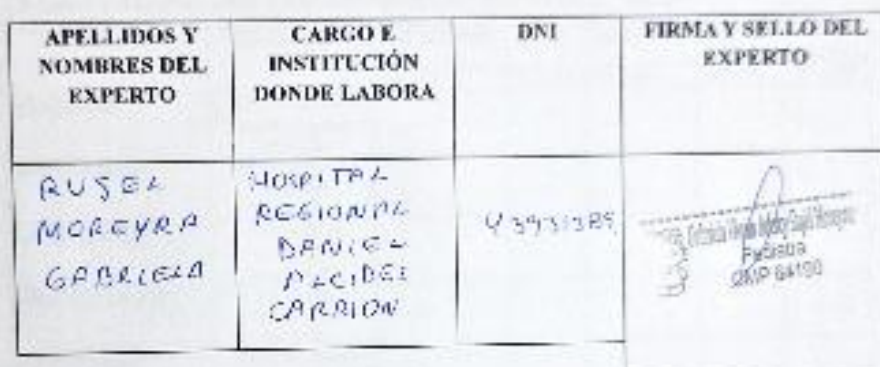 APELLIDOS Y
NOMBRES DEL
EXPERTO
CARGO E
INSTITUCIÓN
DONDE LABORA
DNI
FIRMA Y SELLO DEL
EXPERTO
RUGEL
MOREYRA
GABRIELA
HOSPITAL
REGIONAL
DANIEL
ALCIDES
CARRION